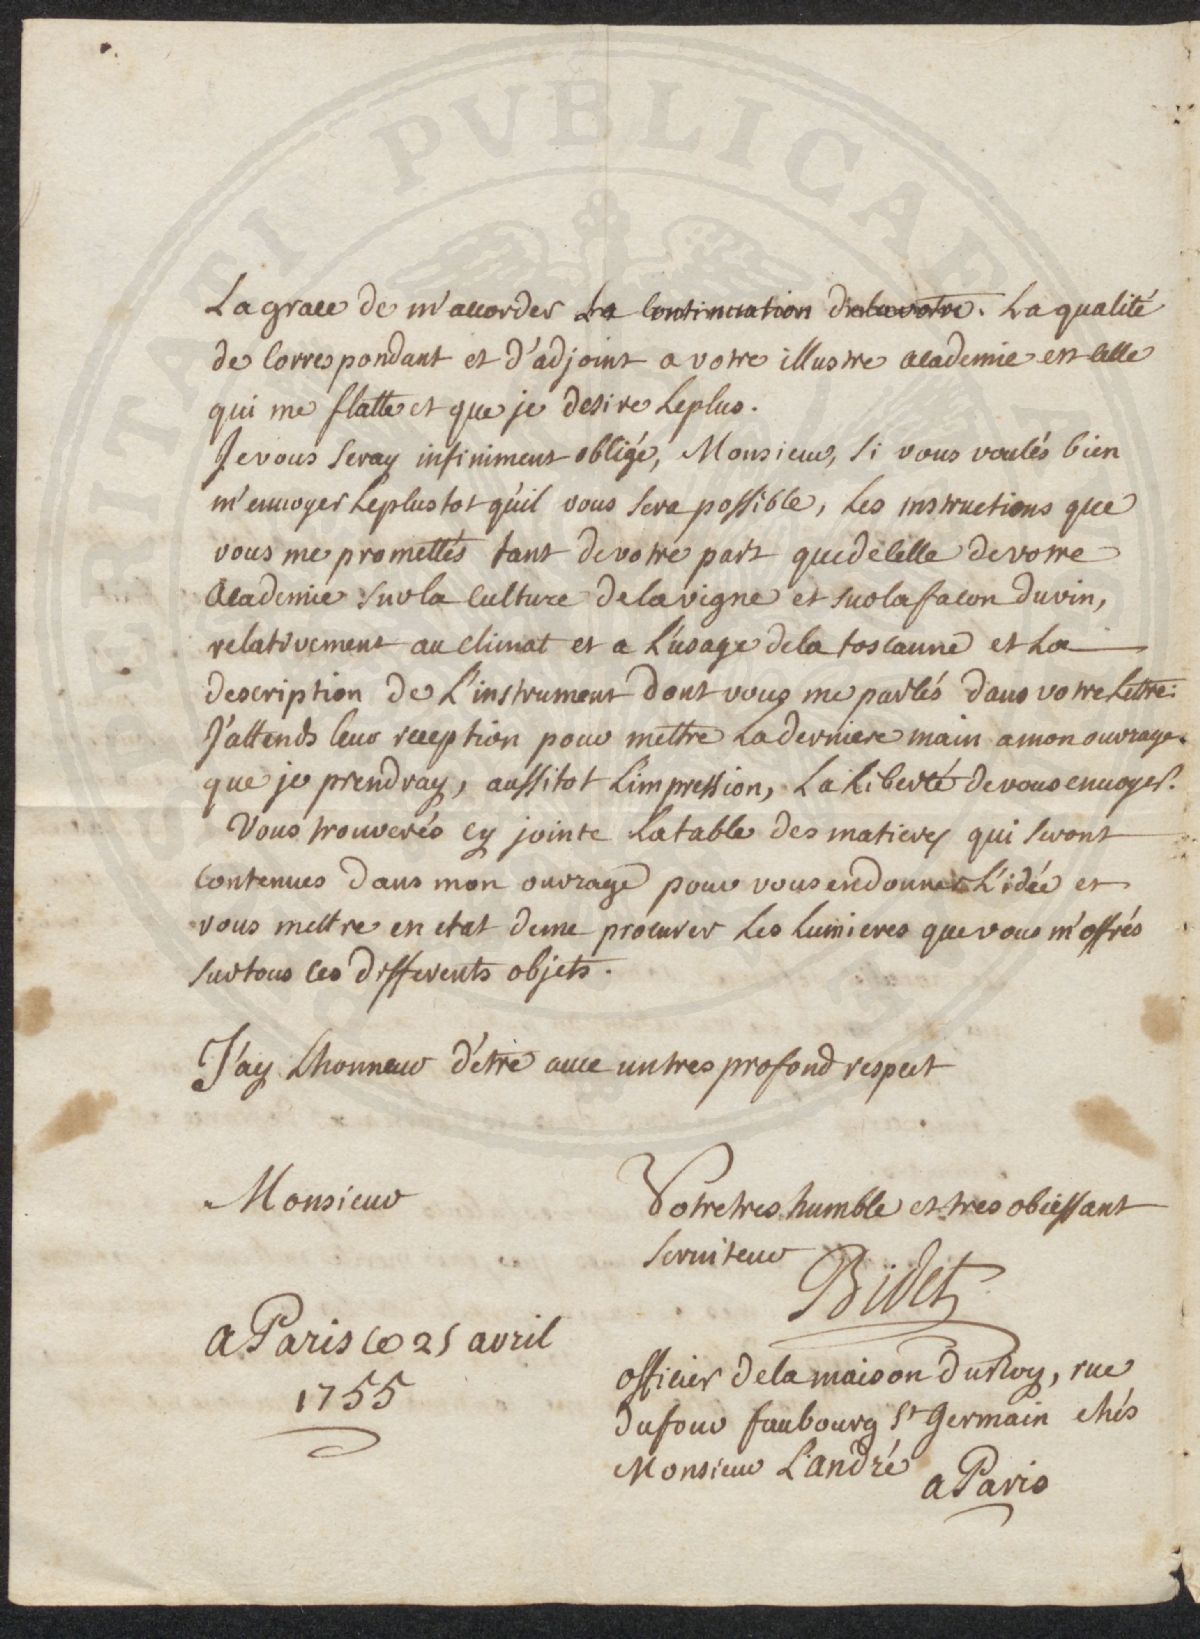 PERITATEI PVBLICAE
La grace de m'accorder la Continuation de la votre. La qualité
de Correspondant et d'adjoint a votre illustre academie est Celle
qui me flatte et que je desire Le plus.
Je vous Seray infiniment obligé, Monsieur, Si vous voulés bien
m'envoyer Le plustot qu'il vous Sera possible, Les instructions que
vous me promettés tant de votre part que de Celle de votre
academie Sur la Culture de la vigne et sur la facon du vin,
relativement au Climat et a L'usage de la toscanne et La
description de L'instrument dont vous me parlés dans votre Lettre.
J'attends leur reception pour mettre La derniere main a mon ouvrage.
que je prendray, aussitot L'impression, La Liberté de vous envoyer.
Vous trouverés Cy jointe La table des matieres qui Seront
Contenues dans mon ouvrage pour vous en donner L'idée et
vous mettre en etat de me procurer Les Lumieres que vous m'offrés
Sur tous Ces differents objets.
J'ay L'honneur d'étre avec un tres profond respect
Monsieur
Votre tres humble et tres obeissant
Serviteur
Bidet
a Paris Ce 25 avril
1755
officier de la maison du Roy, rue
du four faubourg St Germain chés
Monsieur L'andré
a Paris